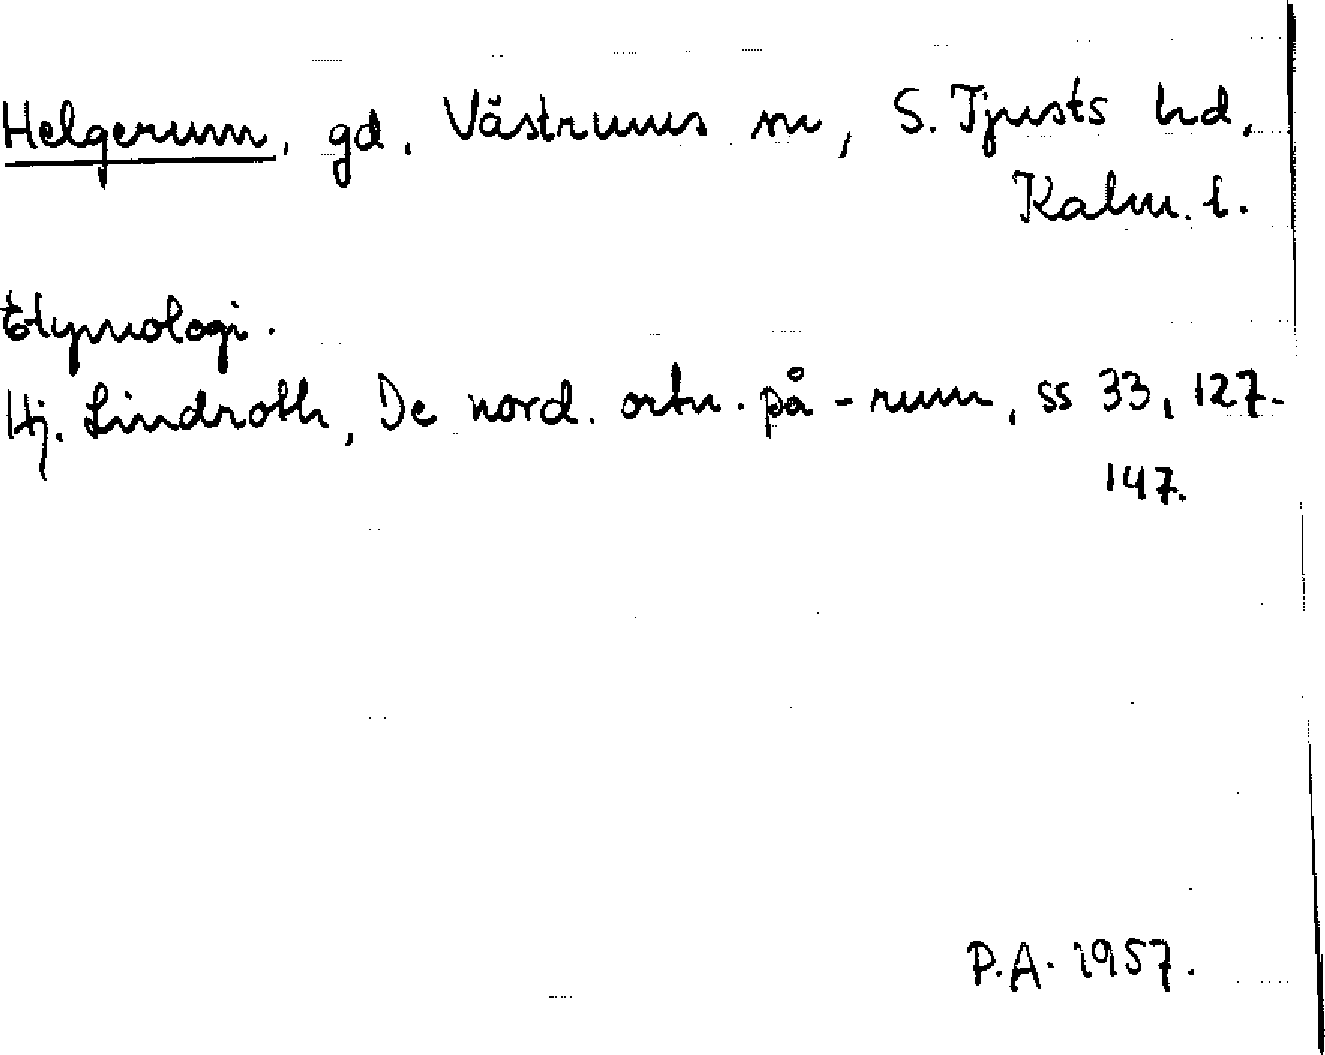 Helgerum, gd. Västrums sn, S. Tjusts hd,
Kalm. l.
Etymologi.
Hj. Lindroth, De nord. ortn. på -rum, ss 33, 127-
147.
P.A. 1957.